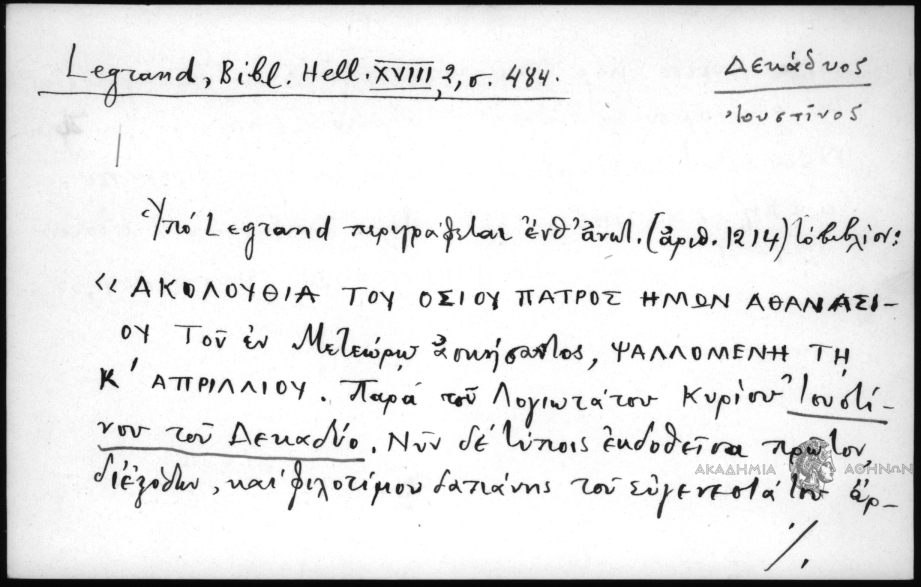 Legrand, Bibl. Hell. XVIII, 2, σ. 484.
Δεκάδυος
Ἰουστῖνος
Ὑπό Legrand περιγράφεται ἐνθ' ἀνωτ. (ἀριθ. 1214) τὸ βιβλίον:
«ΑΚΟΛΟΥΘΙΑ ΤΟΥ ΟΣΙΟΥ ΠΑΤΡΟΣ ΗΜΩΝ ΑΘΑΝΑΣΙ-
ΟΥ Τοῦ ἐν Μετεώρῳ ἀσκήσαντος, ΨΑΛΛΟΜΕΝΗ ΤΗ
Κ' ΑΠΡΙΛΛΙΟΥ. Παρά τοῦ Λογιωτάτου Κυρίου Ἰουστί-
νου τοῦ Δεκαδύο. Νῦν δέ τύποις ἐκδοθεῖσα πρῶτον,
διέξόδων, καί φιλοτίμου δαπάνης τοῦ εὐγενεστάτου ἄρ-
ΑΚΑΔΗΜΙΑ ΑΘΗΝΩΝ
./.